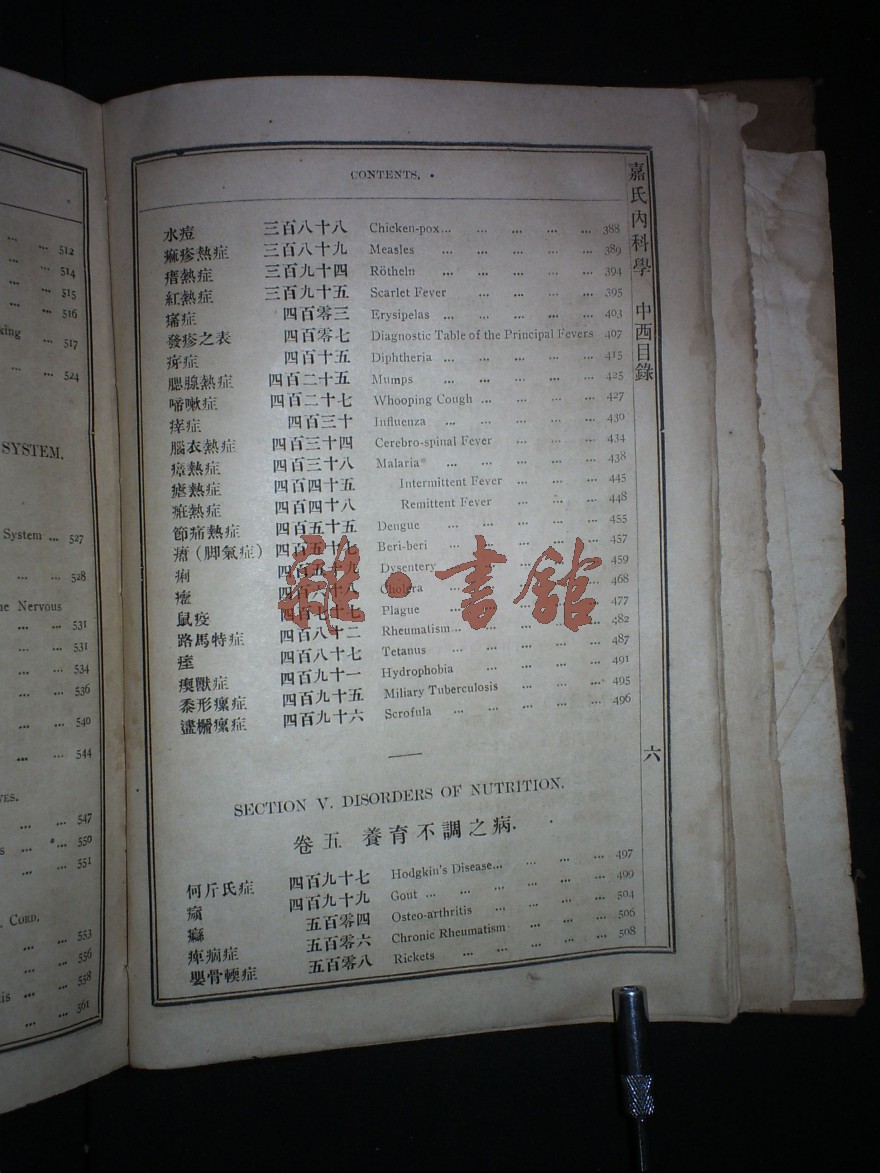 512
514
515
516
king ... ... 517
... ... 524
SYSTEM.
System ... 527
... ... 528
Nervous
... ... 531
... ... 531
... ... 534
... ... 536
... ... 540
... ... 544
... ... 547
... 550
... ... 551
CORD.
... ... 553
... ... 556
... ... 558
... ... 561
CONTENTS.
嘉氏內科學 中西目錄
六
水痘 三百八十八 Chicken-pox... ... ... ... ... 388
痲疹熱症 三百八十九 Measles ... ... ... ... ... 389
瘄熱症 三百九十四 Rötheln ... ... ... ... ... 394
紅熱症 三百九十五 Scarlet Fever ... ... ... ... 395
四百零三 Erysipelas ... ... ... ... ... 403
發疹之表 四百零七 Diagnostic Table of the Principal Fevers 407
四百十五 Diphtheria ... ... ... ... ... 415
腮腺熱症 四百二十五 Mumps ... ... ... ... ... 425
啼嗽症 四百二十七 Whooping Cough ... ... ... ... 427
四百三十 Influenza ... ... ... ... ... 430
腦衣熱症 四百三十四 Cerebro-spinal Fever ... ... ... 434
瘴熱症 四百三十八 Malaria ... ... ... ... ... 438
瘧熱症 四百四十五 Intermittent Fever ... ... ... 445
四百四十八 Remittent Fever ... ... ... 448
節痛熱症 四百五十五 Dengue ... ... ... ... ... 455
(脚氣症) 四百五十七 Beri-beri ... ... ... ... ... 457
痢 四百五十九 Dysentery ... 459
四百六十八 Cholera ... 468
鼠疫 四百七十七 Plague ... 477
路馬特症 四百八十二 Rheumatism... ... ... ... ... 482
痙 四百八十七 Tetanus ... ... ... ... ... 487
瘈獸症 四百九十一 Hydrophobia ... ... ... ... 491
黍形瘰症 四百九十五 Miliary Tuberculosis ... ... ... 495
四百九十六 Scrofula ... ... ... ... ... 496
SECTION V. DISORDERS OF NUTRITION.
卷五 養育不調之病.
何斤氏症 四百九十七 Hodgkin's Disease... ... ... ... 497
四百九十九 Gout ... ... ... ... ... ... 499
五百零四 Osteo-arthritis ... ... ... ... 504
五百零六 Chronic Rheumatism ... ... ... 506
嬰骨輭症 五百零八 Rickets ... ... ... ... ... 508
雜·書館